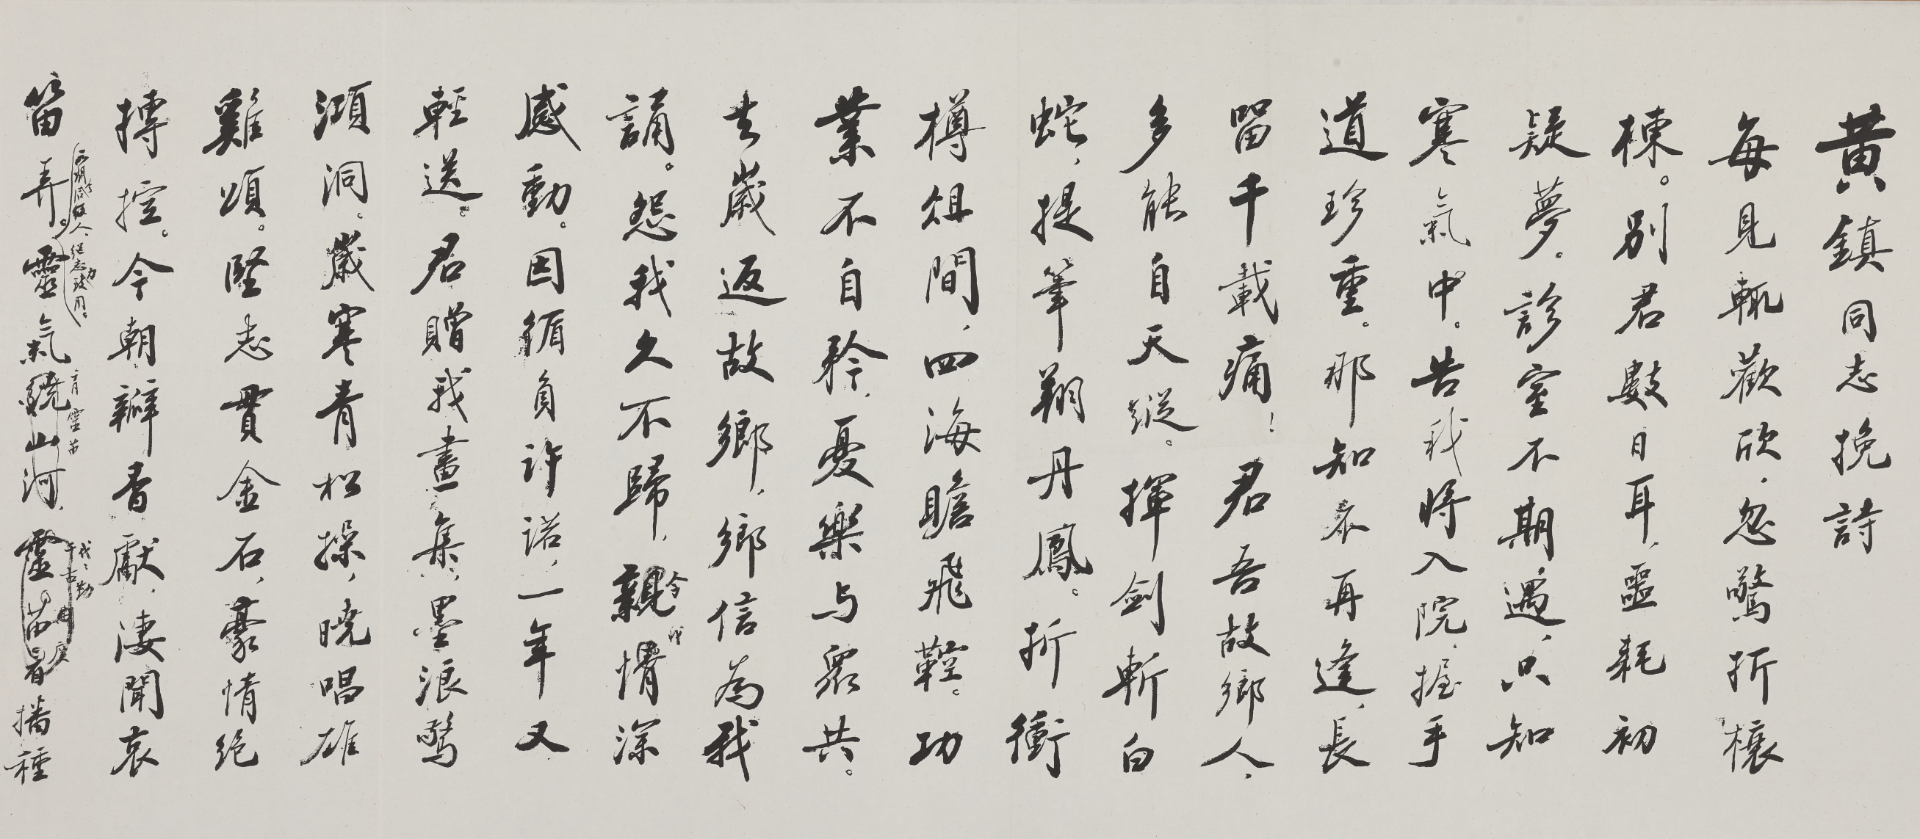 黃鎮同志挽詩
每見輒歡欣，忽驚折榱
棟。別君數日耳，噩耗初
疑夢。診室不期遇，只知
寒氣中。告我將入院，握手
道珍重。那知永再逢，長
留千載痛！君吾故鄉人，
多能自天縱。揮劍斬白
蛇，提筆翔丹鳳。折衝
樽俎間，四海瞻飛鞚。功
業不自矜，憂樂与眾共。
去歲返故鄉，鄉信為我
誦。怨我久不歸，親情深
感動。因循負許諾，一年又
輕送。君贈我畫集，墨浪驚
澒洞。歲寒青松操，曉唱雄
雞頌。堅志貫金石，豪情絕
摶控。今朝瓣香獻，淒聞哀
笛弄。靈氣繞山河，靈苗着播種